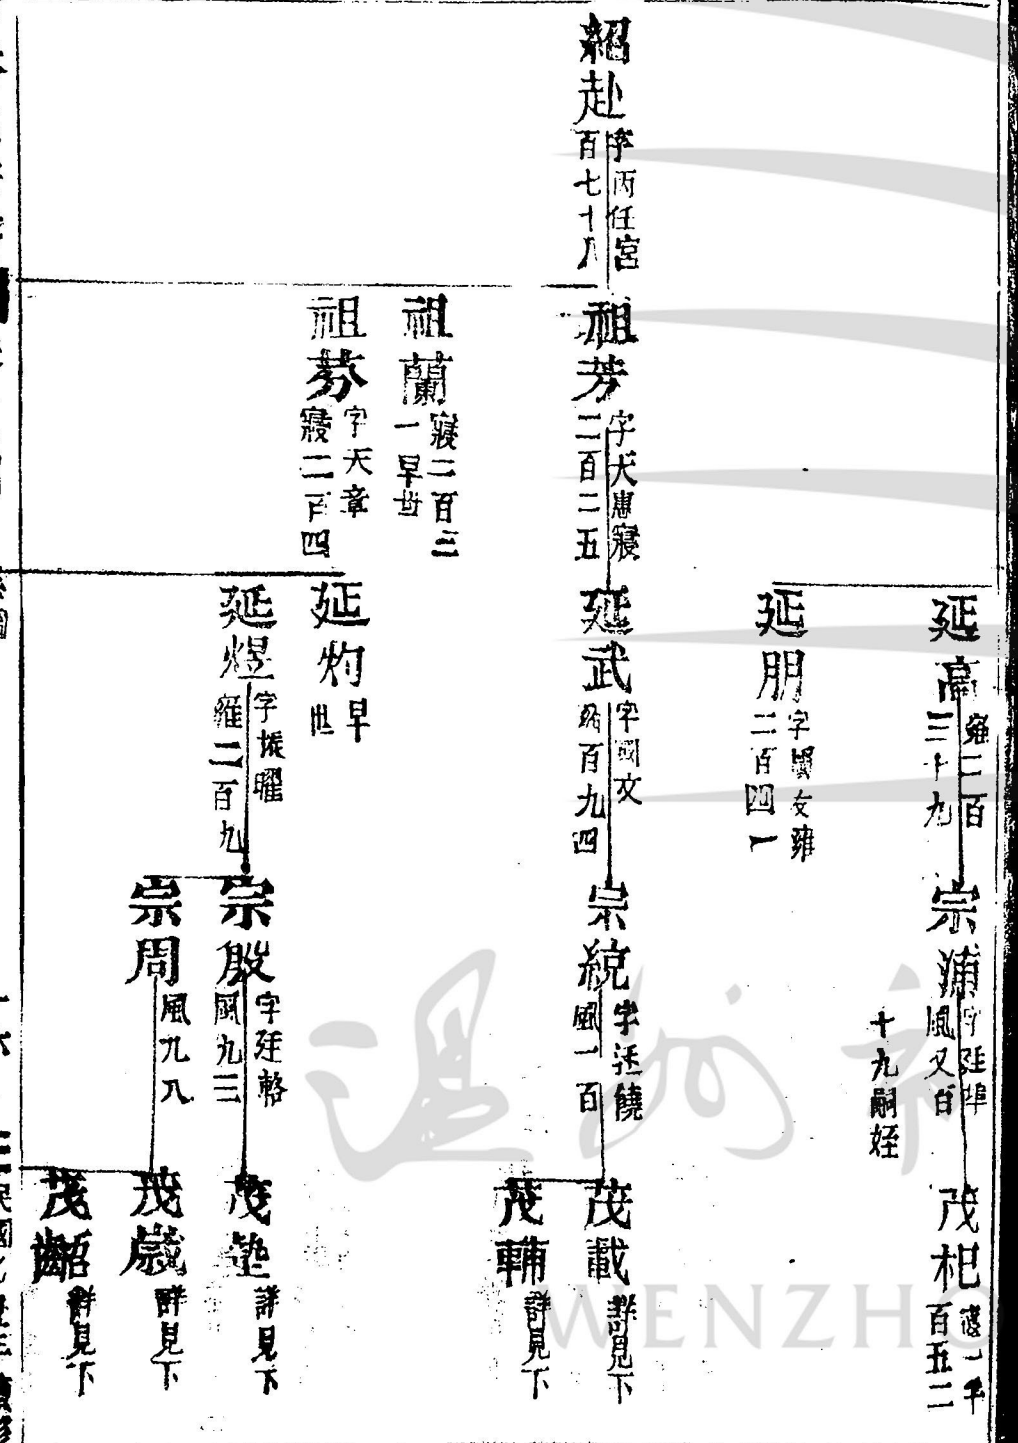 紹赴
字丙任宮
百七十八
祖芳
字天惠寢
二百二五
祖蘭
寢二百三
一早世
祖芬
字天章
寢二百四
延高
雍二百
三十九
延朋
字國友雍
二百四一
延武
字國文
百九四
延灼
早
世
延煜
字振曜
雍二百九
宗浦
字廷埠
風又百
十九嗣姪
宗統
字廷饒
風一百
宗殷
字廷輅
風九三
宗周
風九八
茂杞
百五二
茂載
詳見下
茂輔
詳見下
茂墊
詳見下
茂歲
詳見下
茂
詳見下
温州市
WENZHO